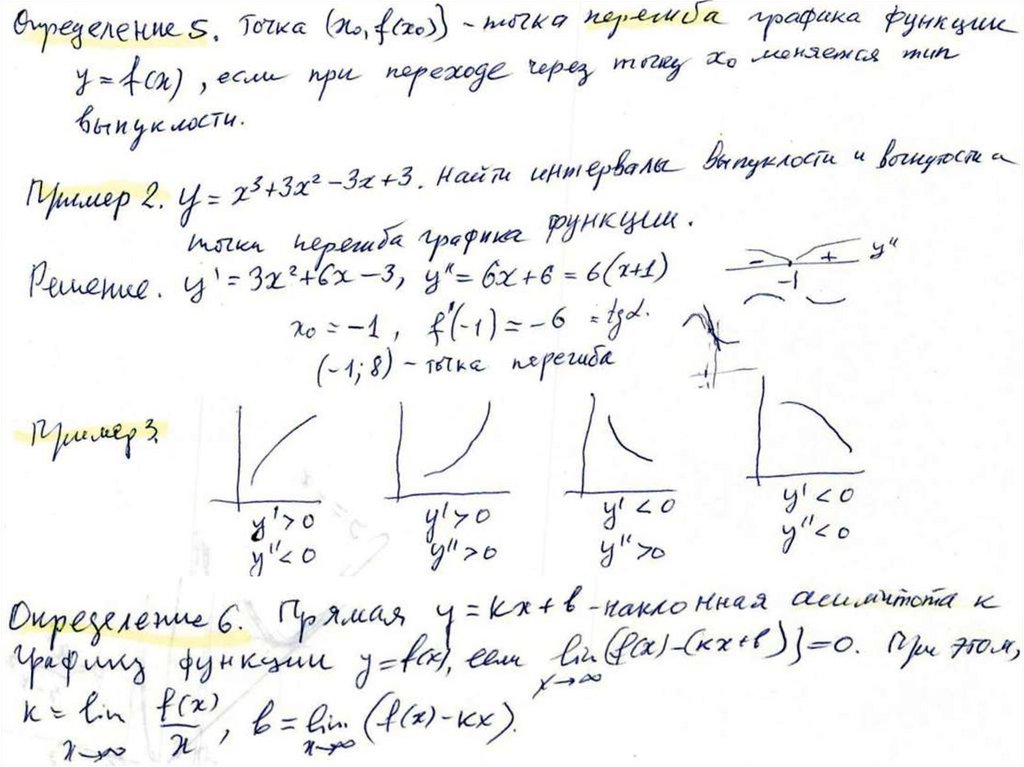 Определение 5. Точка (x₀, f(x₀)) - точка перегиба графика функции
y = f(x), если при переходе через точку x₀ меняется тип
выпуклости.
Пример 2. y = x³+3x²-3x+3. Найти интервалы выпуклости и вогнутости и
точки перегиба графика функции.
Решение. y' = 3x²+6x-3, y'' = 6x+6 = 6(x+1)
- + y''
-1
x₀ = -1, f'(-1) = -6 = tgα.
(-1; 8) - точка перегиба
-1
Пример 3.
y' > 0 y' > 0 y' < 0 y' < 0
y'' < 0 y'' > 0 y'' > 0 y'' < 0
Определение 6. Прямая y = kx + b - наклонная асимптота к
графику функции y = f(x), если lim {f(x)-(kx+b)} = 0. При этом,
x→∞
k = lim f(x)/x, b = lim (f(x)-kx).
x→∞ x→∞